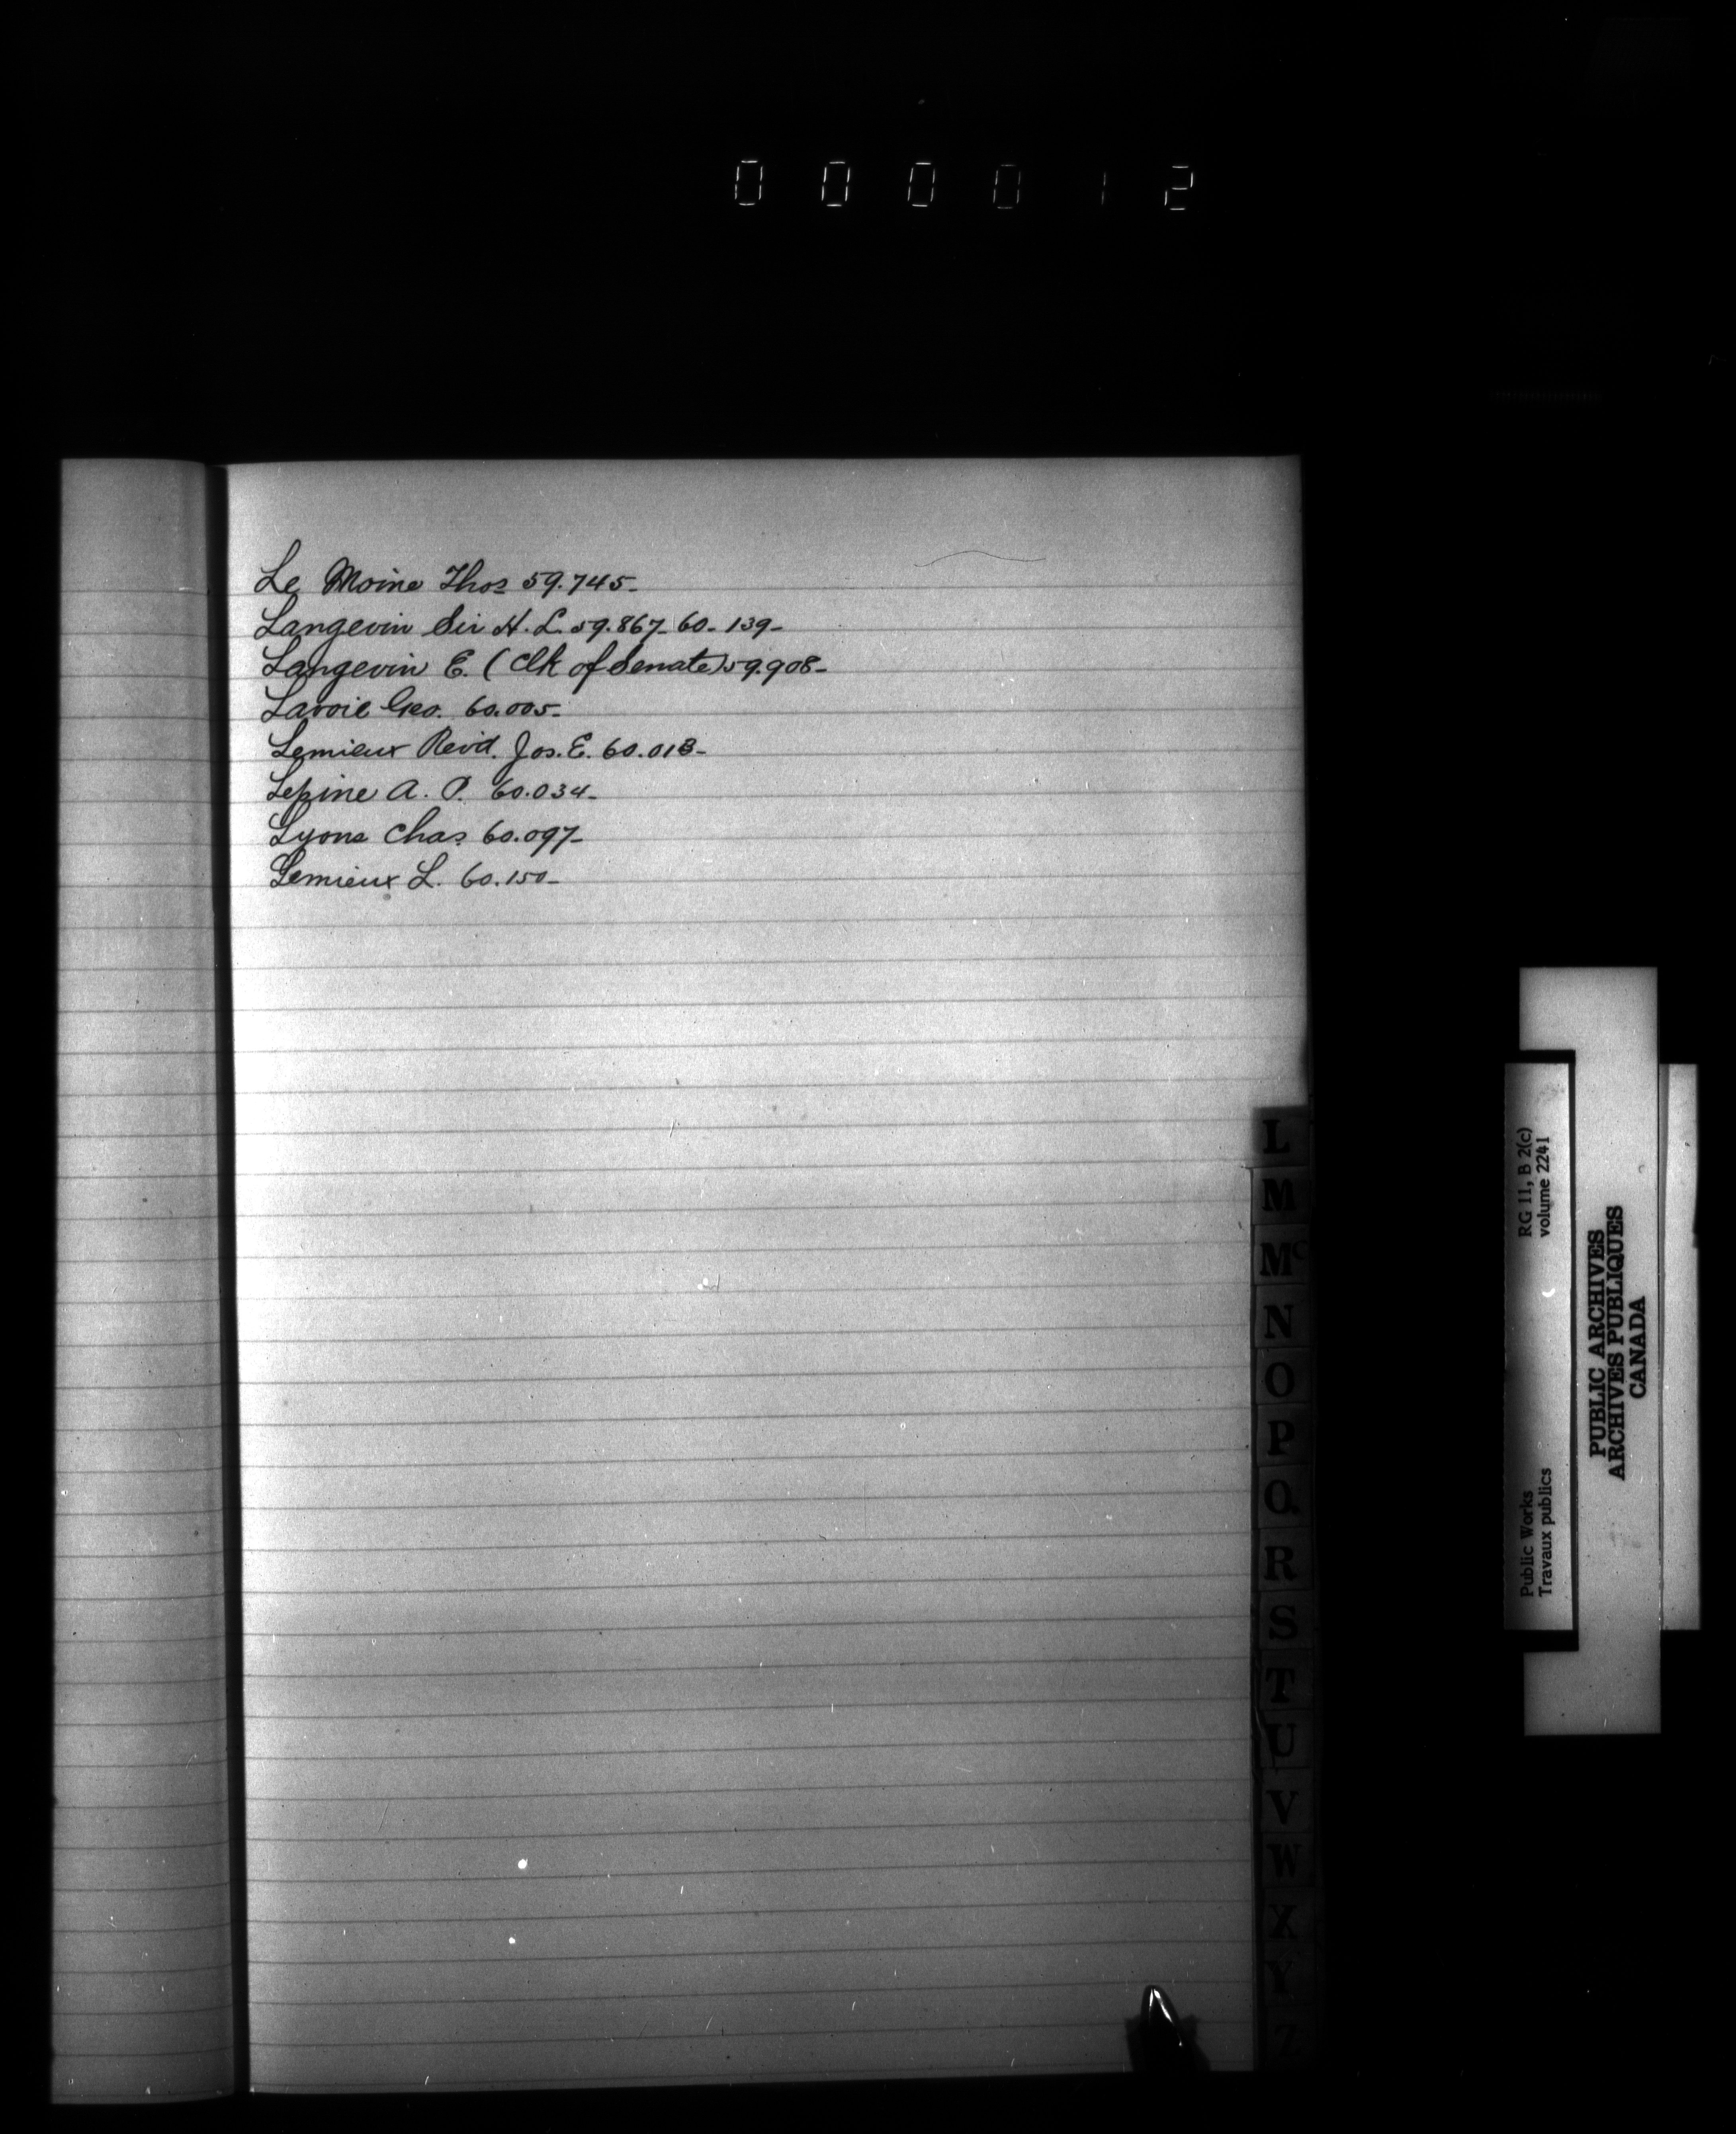 000012
Le Moine Thos 59.745-
Langevin Sir H. L. 59.867- 60- 139-
Langevin E. (Clk of Senate) 59.908-
Lavoie Geo. 60.005-
Lemieux Revd. Jos. E. 60.013-
Lepine A. P. 60.034-
Lyons Chas 60.097-
Lemieux L. 60.150-
L
M
Mc
N
O
P
Q
R
S
T
U
V
W
X
Y
Z
Public Works RG 11, B 2(c)
Travaux publics volume 2241
PUBLIC ARCHIVES
ARCHIVES PUBLIQUES
CANADA